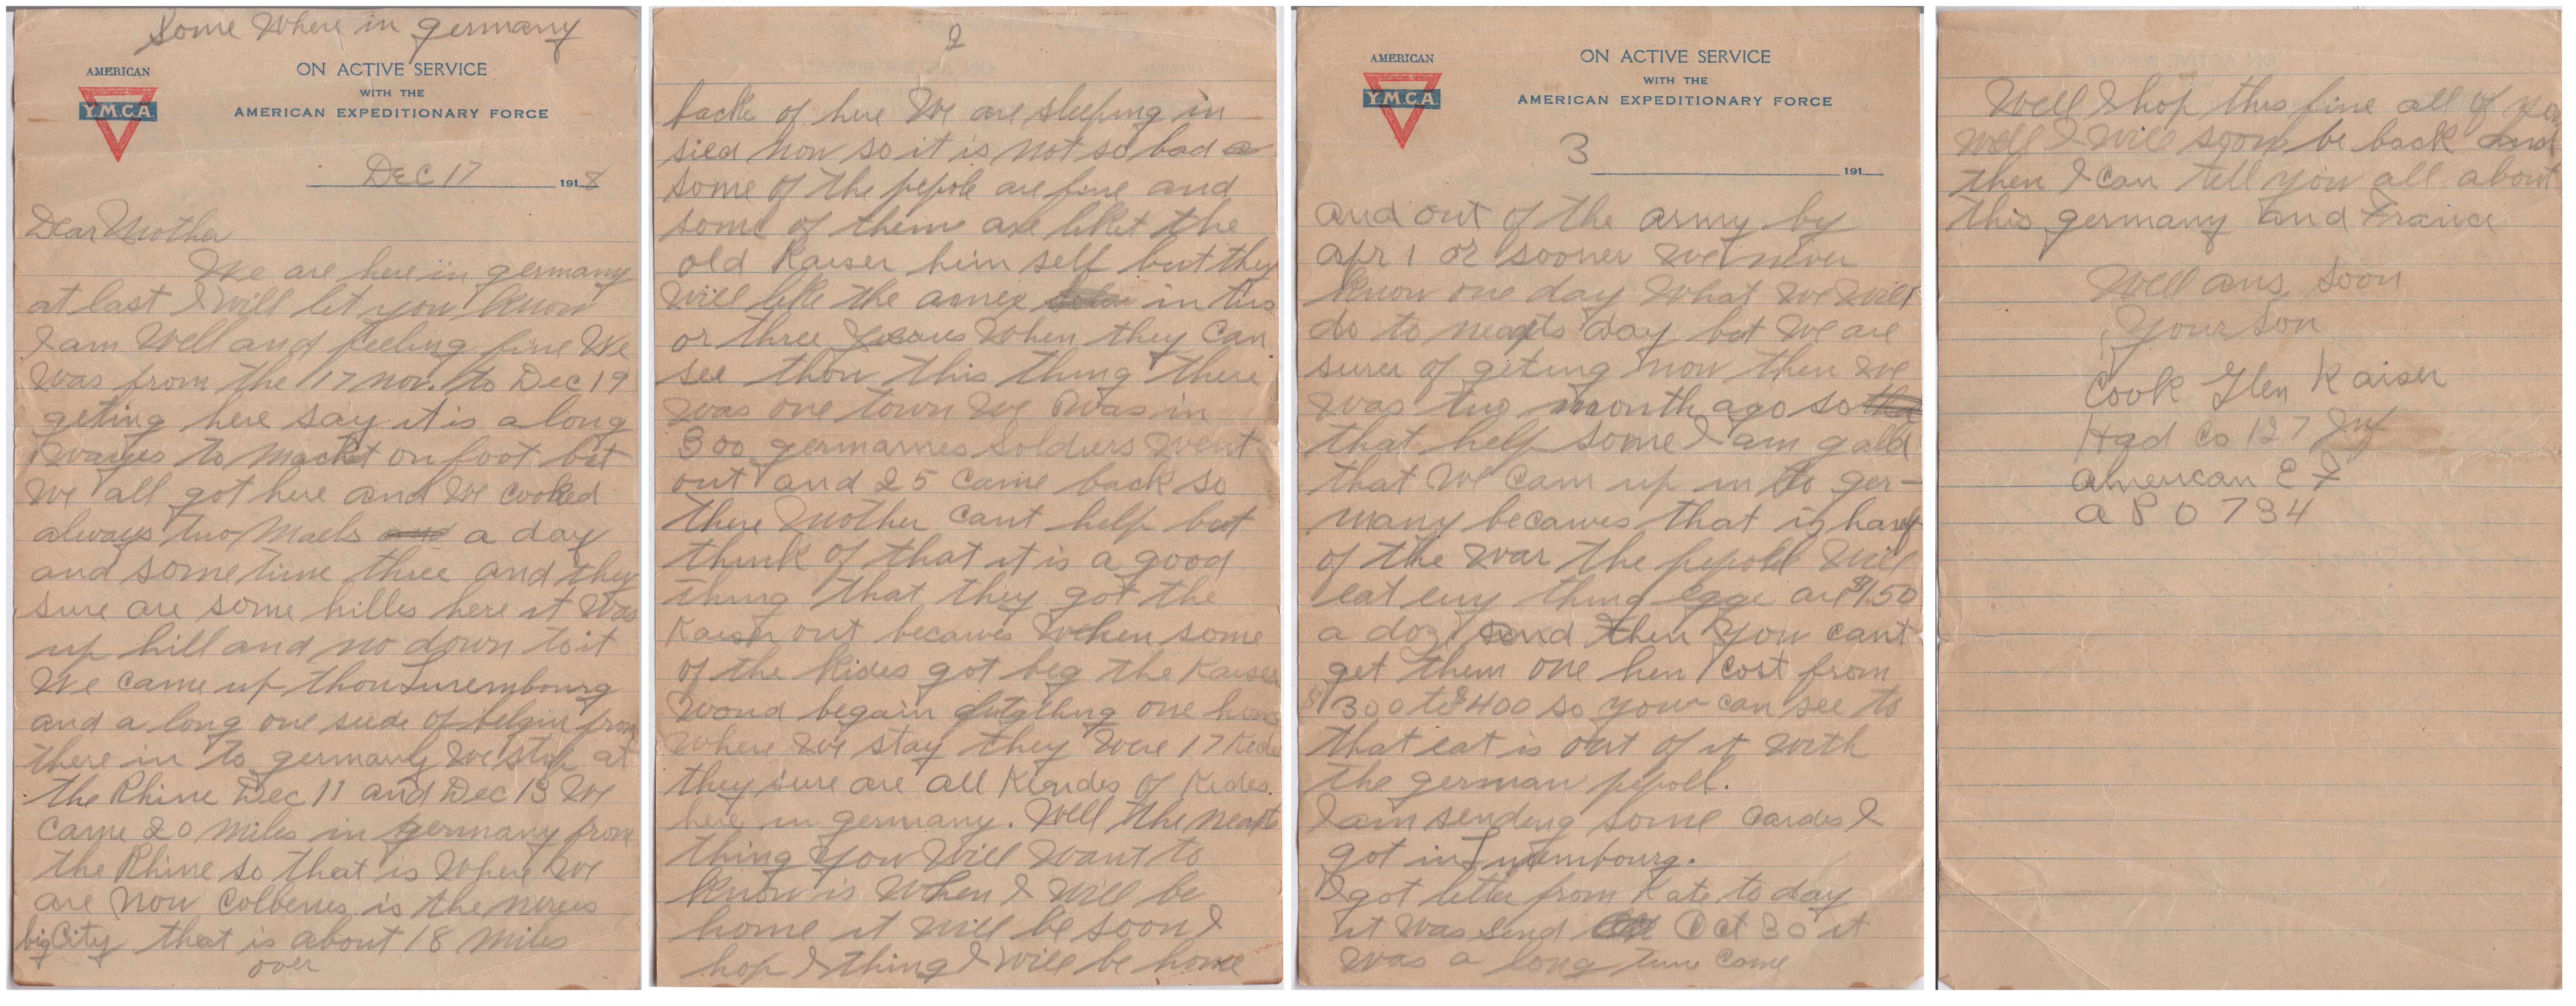 Some Where in germany
AMERICAN
Y.M.C.A.
ON ACTIVE SERVICE
WITH THE
AMERICAN EXPEDITIONARY FORCE
DEC 17 1918
Dear Mother
We are here in germany
at last I will let you know
I am Well and feeling fine We
was from the 17 nov. to Dec 19
geting here say it is a long
wayes to on foot but
we all got here and we cooked
always two Maels a day
and some time three and they
sure are some hilles here it was
up hill and no down to it
We came up thou Luxembourg
and a long one side of belgin from
there in to germany we stop at
the Rhine Dec 11 and Dec 13 We
came 20 miles in germany from
the Rhine so that is where we
are now is the
big City that is about 18 miles
over
2
backe of here We are sleeping in
sied now so it is not so bad
some of the pepole are fine and
some of them are the
old Kaiser him self but they
will like the in two
or three when they can
see thou this thing there
was one town we was in
300 soldiers went
out and 25 came back so
there Mother cant help but
think of that it is a good
thing that they got the
Kaiser out becawes when some
of the Kides got beg the Kaiser
woud begain one
where we stay they were 17
they sure are all Kindes of Kides
here in germany. Well the
thing you will want to
know is when I will be
home it will be soon I
hop I thing I will be home
AMERICAN
Y.M.C.A.
ON ACTIVE SERVICE
WITH THE
AMERICAN EXPEDITIONARY FORCE
3
191
and out of the army by
apr 1 or sooner we never
know one day what we will
do to day but we are
surer of geting now then we
was two month ago so
that help some I am galld
that we cam up in to ger-
many becawes that is
of the war the will
eat eny thing are $1.50
a doz and then you cant
get them one hen cost from
$300 to $400 so you can see to
that eat is out of it with
the german pepoll.
I am sending some cardes I
got in Luxembourg.
I got letter from Kate to day
it was send Oct 30 it
was a long time come
Well I hop this fine all of you
well I will soon be back and
then I can tell you all about
this germany and France
Well ans. soon
Your Son
Cook Glen Kaiser
Hqd Co 127 Inf
American E F
A P O 734